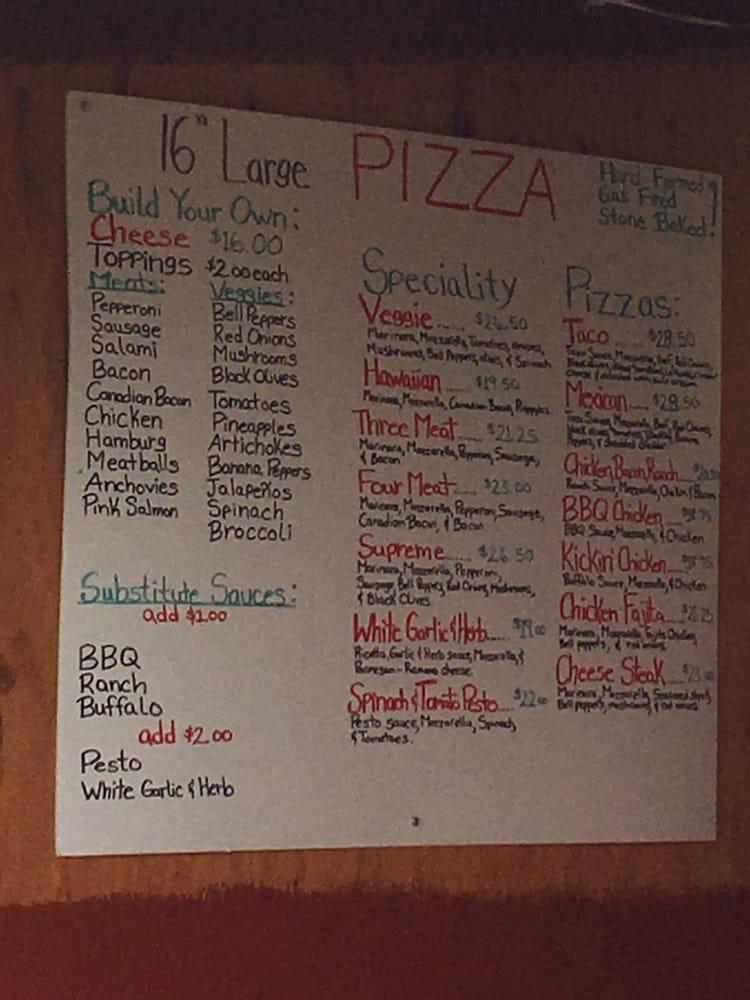 16" Large PIZZA
Hard Formed
Gas Fired
Stone Baked!
Build Your Own:
Cheese $16.00
Toppings $2.00 each
Meats:
Pepperoni
Sausage
Salami
Bacon
Canadian Bacon
Chicken
Hamburg
Meatballs
Anchovies
Pink Salmon
Veggies:
Bell Peppers
Red Onions
Mushrooms
Black Olives
Tomatoes
Pineapples
Artichokes
Banana Peppers
Jalapeños
Spinach
Broccoli
Substitute Sauces:
add $1.00
BBQ
Ranch
Buffalo
add $2.00
Pesto
White Garlic & Herb
Speciality Pizzas:
Veggie...... $26.50
Marinara, Mozzarella, Tomatoes, onions,
Mushrooms, Bell Peppers, olives, & Spinach
Hawaiian .... $19.50
Marinara, Mozzarella, Canadian Bacon, Pineapples
Three Meat... $21.25
Marinara, Mozzarella, Pepperoni, Sausage,
& Bacon
Four Meat..... $23.00
Marinara, Mozzarella, Pepperoni, Sausage,
Canadian Bacon, & Bacon
Supreme..... $26.50
Marinara, Mozzarella, Pepperoni,
Sausage, Bell Peppers, Red Onions, Mushrooms,
& Black Olives
White Garlic & Herb..... $19.00
Ricotta, Garlic & Herb sauce, Mozzarella, &
Parmesan-Romano cheese.
Spinach & Tomato Pesto... $22.00
Pesto sauce, Mozzarella, Spinach,
& Tomatoes.
Taco ....... $28.50
Taco Sauce, Mozzarella, Beef, Red Onions,
Mexican.... $28.50
Taco Sauce, Mozzarella, Beef, Red Onions,
Chicken Bacon Ranch
Ranch Sauce, Mozzarella, Chicken & Bacon
BBQ Chicken
BBQ Sauce, Mozzarella, & Chicken
Kickin' Chicken
Buffalo Sauce, Mozzarella, & Chicken
Chicken Fajita
Marinara, Mozzarella, Fajita Chicken,
Bell peppers, & red onions
Cheese Steak
Marinara, Mozzarella, Seasoned steak,
Bell peppers, mushrooms, & red onions